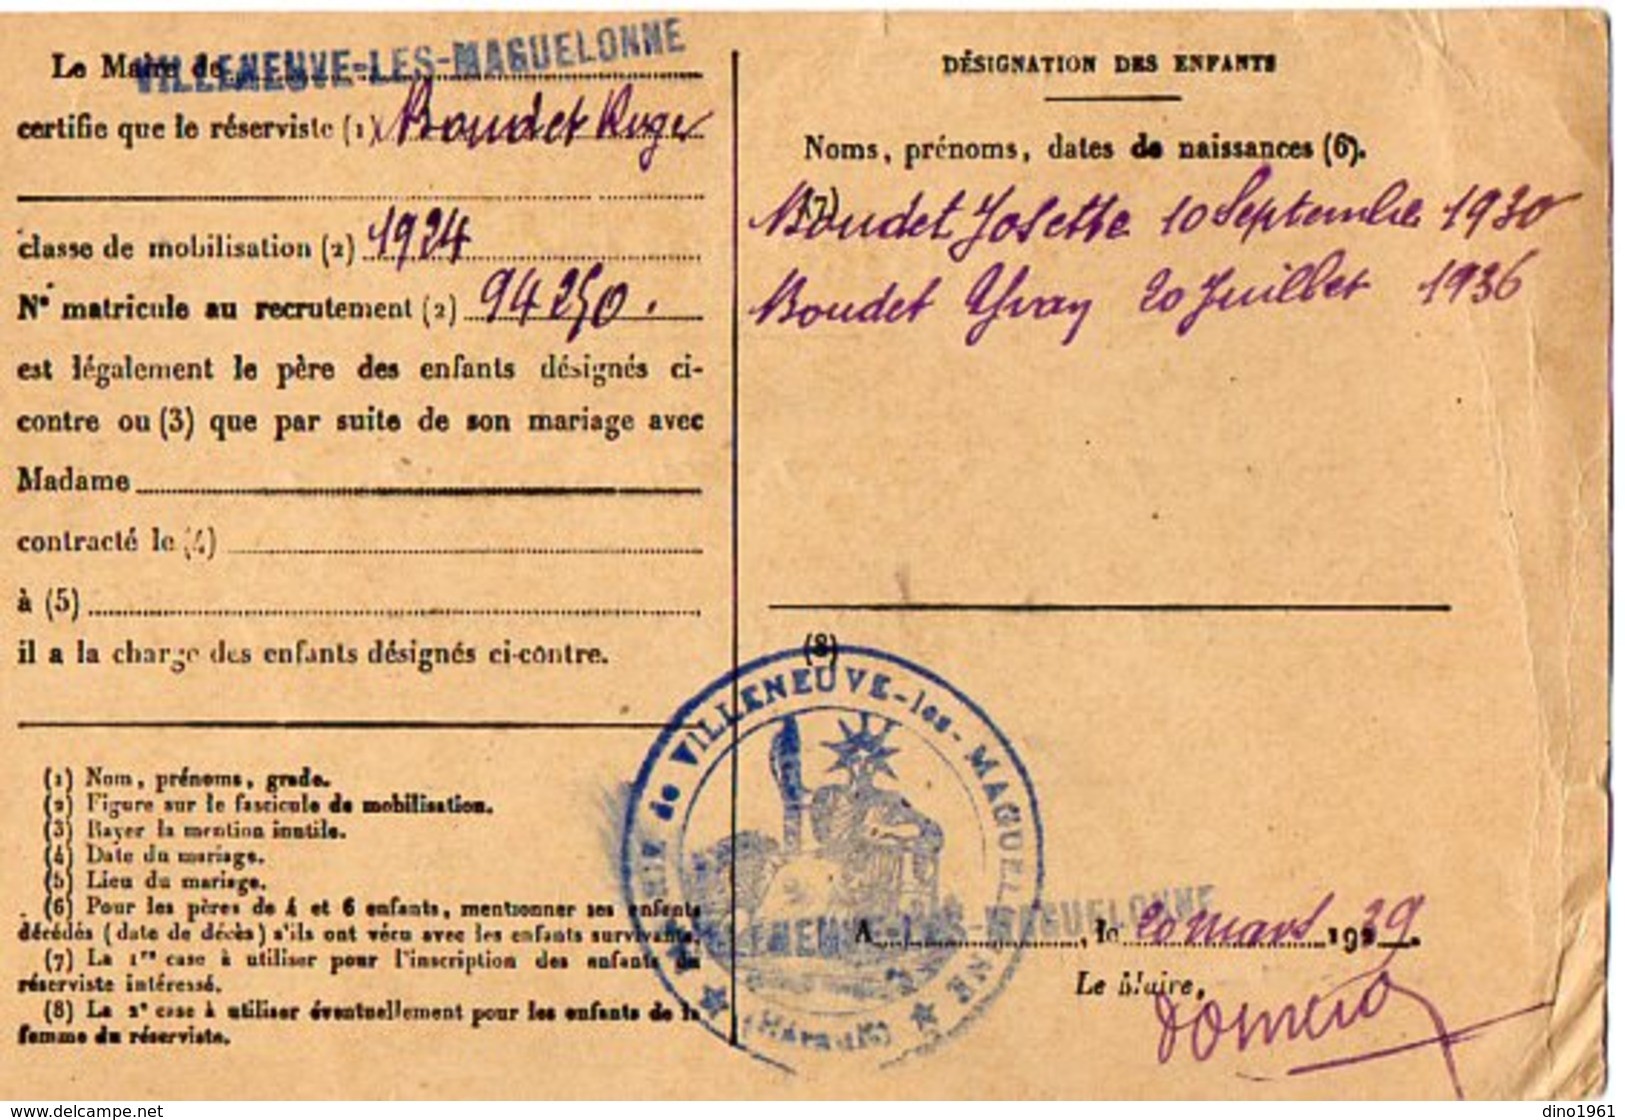 Le Maire de VILLENEUVE-LES-MAGUELONNE
certifie que le réserviste (1) Boudet
classe de mobilisation (2) 1924
N° matricule au recrutement (2) 94250.
est légalement le père des enfants désignés ci-
contre ou (3) que par suite de son mariage avec
Madame
contracté le (4)
à (5)
il a la charge des enfants désignés ci-contre.
(1) Nom, prénoms, grade.
(2) Figure sur le fascicule de mobilisation.
(3) Rayer la mention inutile.
(4) Date du mariage.
(5) Lieu du mariage.
(6) Pour les pères de 4 et 6 enfants, mentionner ses enfants
décédés (date de décès) s'ils ont vécu avec les enfants survivants.
(7) La 1re case à utiliser pour l'inscription des enfants du
réserviste intéressé.
(8) La 2e case à utiliser éventuellement pour les enfants de la
femme du réserviste.
DÉSIGNATION DES ENFANTS
Noms, prénoms, dates de naissances (6).
(7)
Boudet Josette 10 Septembre 1930
Boudet Yvan 20 Juillet 1936
(8)
MAIRIE de VILLENEUVE-les-MAGUELONNE
(Hérault)
A VILLENEUVE-LES-MAGUELONNE, le 20 mars 1939.
Le Maire,
www.delcampe.net
dino1961